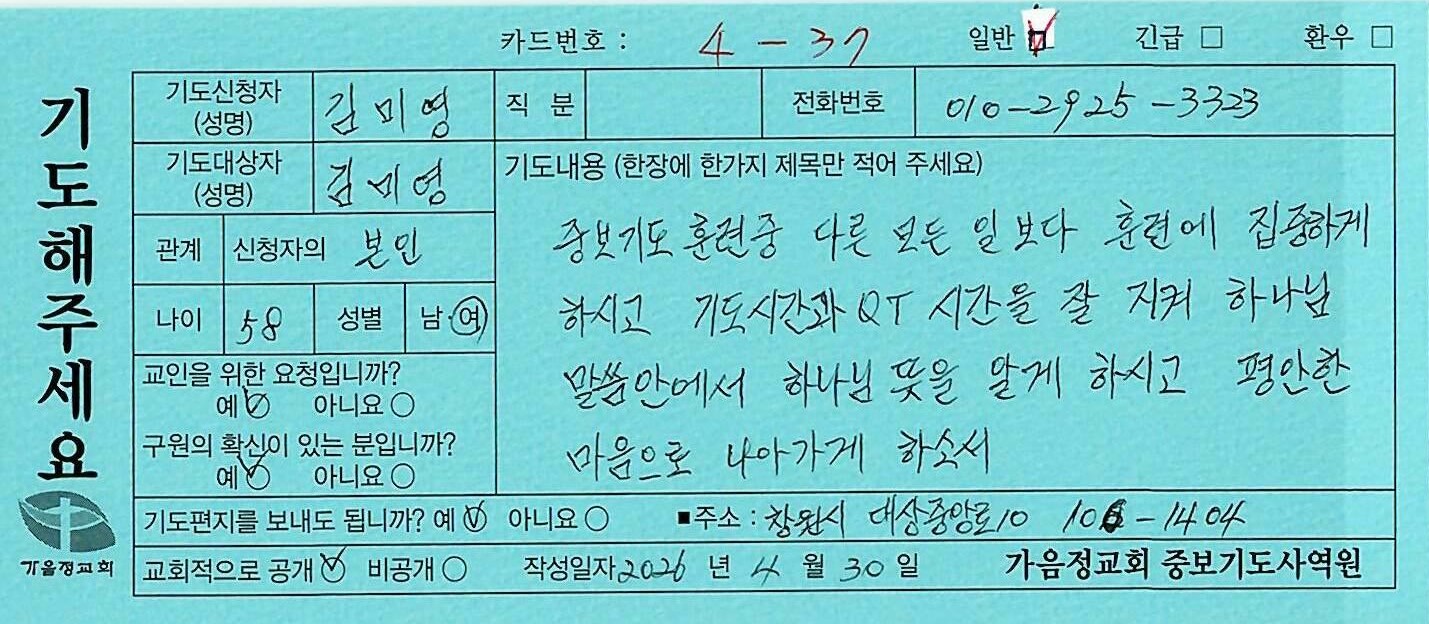 카드번호 : 4 - 37 일반 ☑ 긴급 □ 환우 □
기도해주세요
기도신청자 (성명) 김미영 직 분 전화번호 010-2925-3323
기도대상자 (성명) 김미영
관계 신청자의 본인
나이 58 성별 남·여
교인을 위한 요청입니까?
예 ☑ 아니요 ○
구원의 확신이 있는 분입니까?
예 ☑ 아니요 ○
기도내용 (한장에 한가지 제목만 적어 주세요)
중보기도 훈련중 다른 모든 일보다 훈련에 집중하게
하시고 기도시간과 QT 시간을 잘 지켜 하나님
말씀안에서 하나님 뜻을 알게 하시고 평안한
마음으로 나아가게 하소서
기도편지를 보내도 됩니까? 예 ☑ 아니요 ○ ■주소 : 창원시 대상중앙로10 -1404
교회적으로 공개 ☑ 비공개 ○ 작성일자 2026 년 4 월 30 일 가음정교회 중보기도사역원
가음정교회